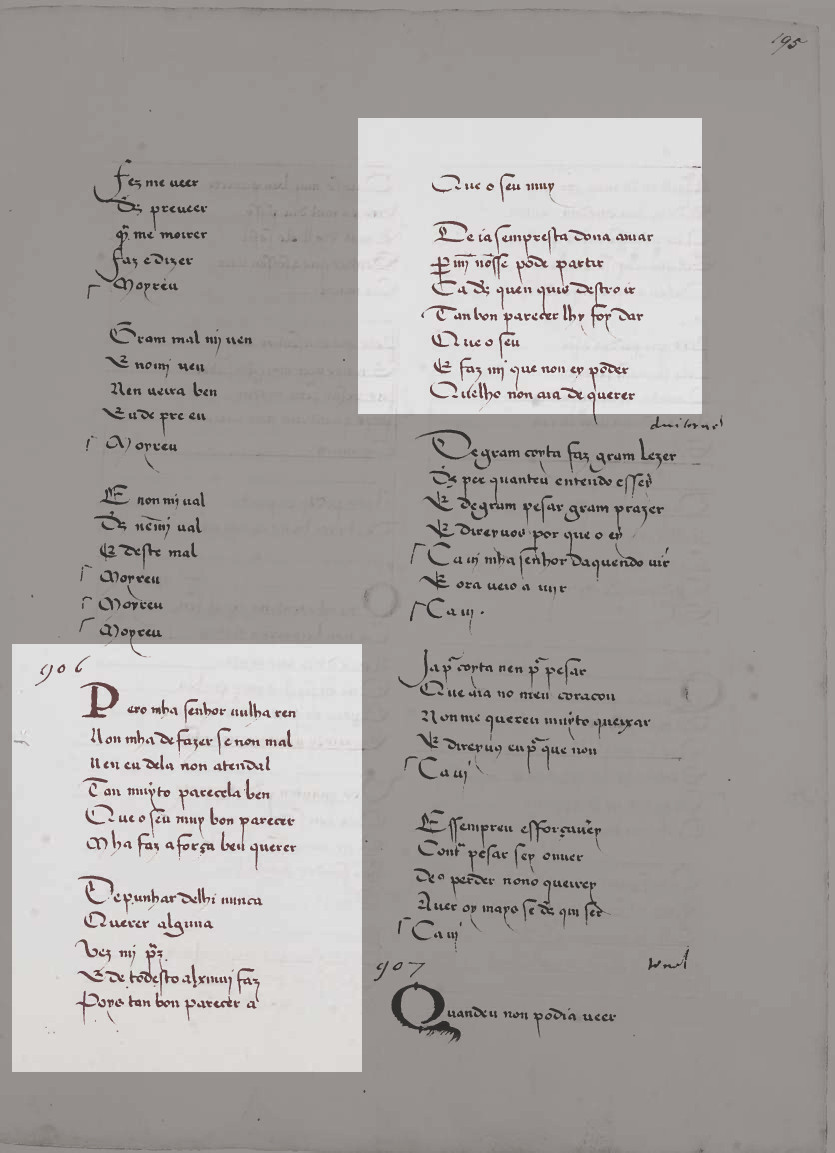 195
Fez me ueer
Ds̄ preueer
q̄ me morrer
faz e dizer
Moyreu
Gram mal mj uen
E nomj uen
Nen ueira ben
Eu de pre eu
Moyreu
E non mj ual
Ds̄ nēmj ual
E deste mal
Moyreu
Moyreu
Moyreu
906
Pero mha senhor nulha ren
Non mha de fazer se non mal
Nen eu dela non atendal
Tan muyto parecela ben
Que o seu muy bon parecer
Mha faz aforça ben querer
De punhar delhi nunca
Querer alguna
Vez mj
E de todesto alxmuj faz
Poys tan bon parecer a
Que o seu muy
De ia sempresta dona amar
nōsse pode partir
Ca ds̄ quen quis destroir
Tan bon parecer lhy foy dar
Que o seu
E faz mj que non ey poder
Quelho non aia de querer
De gram coyta faz gram lezer
Ds̄ per quanteu entendo
E de gram pesar gram prazer
E direyuos por que o ey
Ca uj mha senhor daquendo uir
E ora ueio a uijr
Ca uj.
Ja pa coyta nen pa pesar
Que aia no meu coracon
Non me quereu muyto queixar
E direyuos eu pa que non
Ca uj
E ssempreu esforçauey
Contra pesar sey
De o perder nono queirey
Auer oy mays se ds̄ qui ser
Ca uj
907
tornel
Quandeu non podia ueer